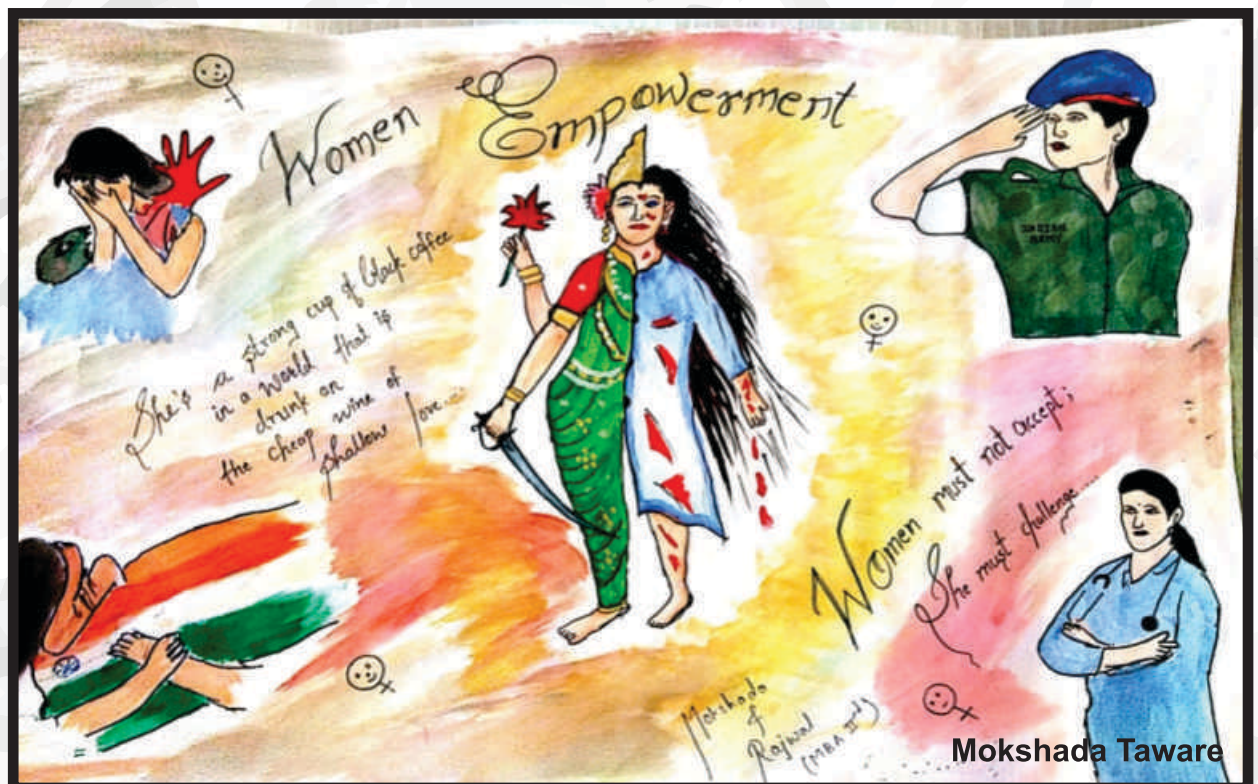 Women Empowerment
She's a strong cup of black coffee
in a world that is
drunk on
the cheap wine of
shallow love...
INDIAN
ARMY
Women must not accept;
She must challenge....
Mokshada
&
Rajwal
(MBA IInd)
Mokshada Taware